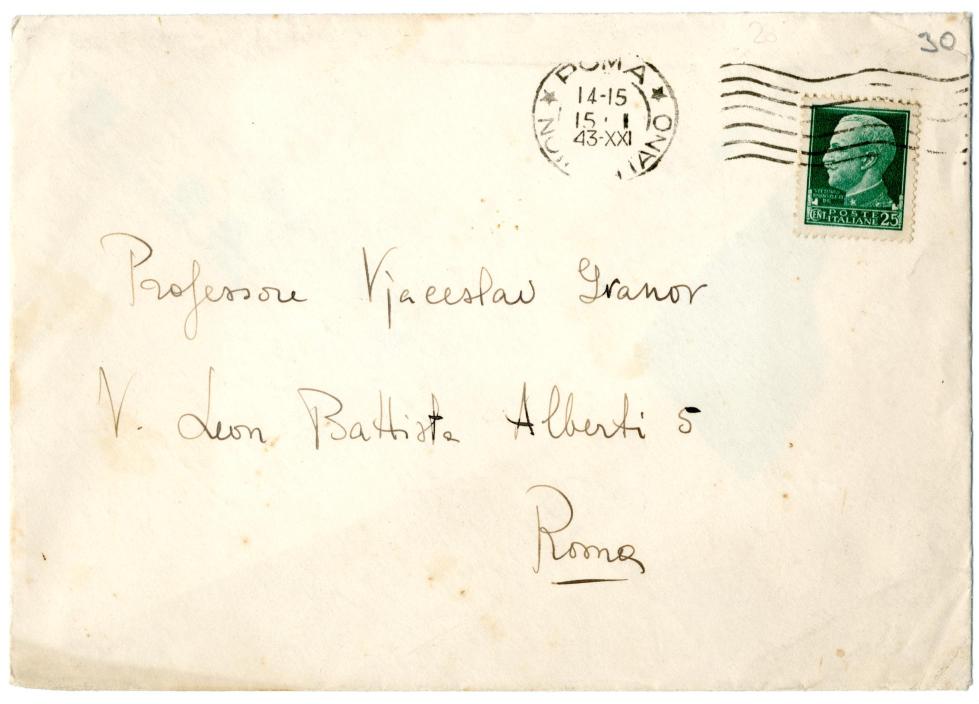 30
ROMA
14-15
15 · I
43-XXI
VITTORIO
CENT POSTE 25
ITALIANE
Professore Vjaceslav Ivanov
V. Leon Battista Alberti 5
Roma